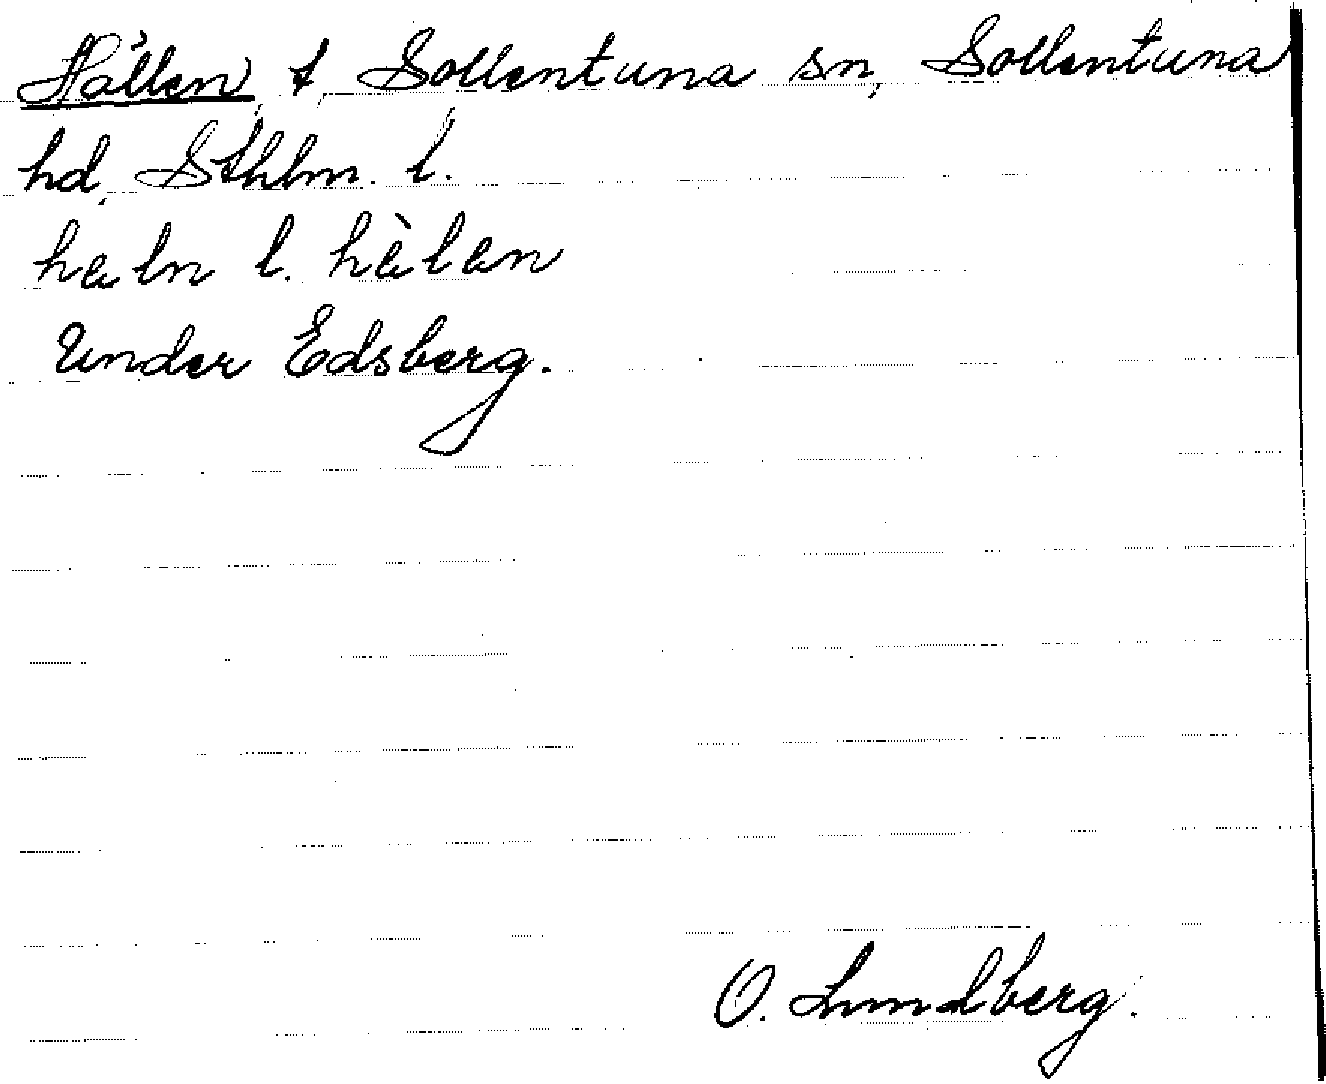 Hållen, t, Sollentuna sn, Sollentuna
hd, Sthlm. l.
hęln l. hèlen
Under Edsberg.
O. Lundberg.